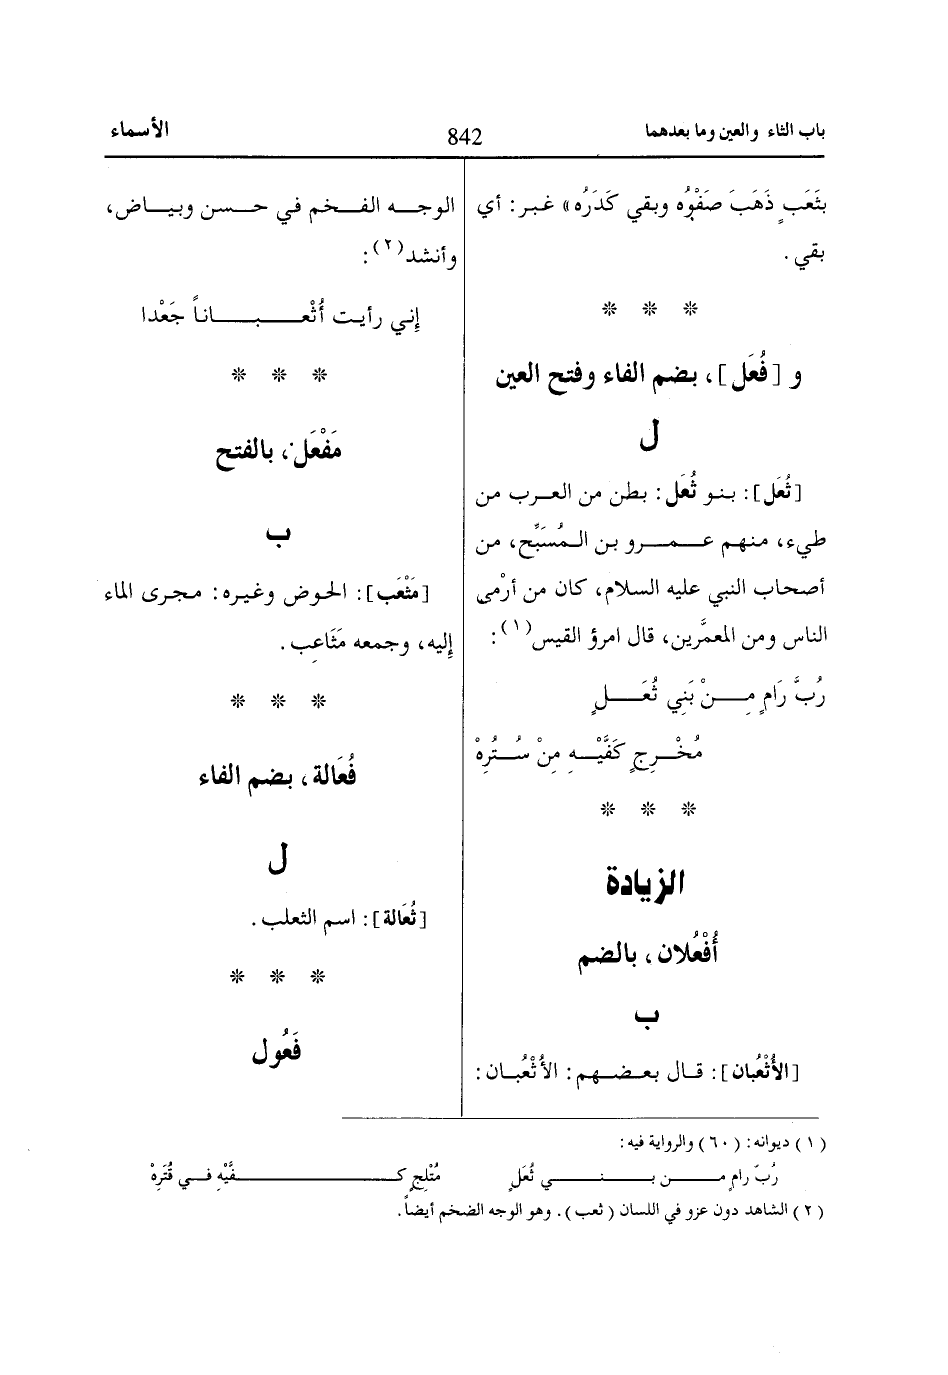 باب الثاء والعين وما بعدهما
842
الأسماء
بثَعَبٍ ذَهَبَ صَفْوُه وبقي كَدَرُه» غبر: أي
بقي.
* * *
و [فُعَل]، بضم الفاء وفتح العين
ل
[ثُعَل]: بنو ثُعَل: بطن من العرب من
طيء، منهم عمرو بن المُسَبِّح، من
أصحاب النبي عليه السلام، كان من أرْمى
الناس ومن المعمَّرين، قال امرؤ القيس(١):
رُبَّ رَامٍ مِنْ بَنِي ثُعَلٍ
مُخْرِجٍ كَفَّيْهِ مِنْ سُتُرِهْ
* * *
الزيادة
أُفْعُلان، بالضم
ب
[الأُثْعُبان]: قال بعضهم: الأُثْعُبان:
الوجه الفخم في حسن وبياض،
وأنشد(٢):
إني رأيت أُثْعُباناً جَعْدا
* * *
مَفْعَل، بالفتح
ب
[مَثْعَب]: الحوض وغيره: مجرى الماء
إليه، وجمعه مَثَاعِب.
* * *
فُعَالة، بضم الفاء
ل
[ثُعَالة]: اسم الثعلب.
* * *
فَعُول
(١) ديوانه: (٦٠) والرواية فيه:
رُبّ رام من بني ثُعَلٍ مُتْلِجٍ كفَّيْهِ في قُتَرِهْ
(٢) الشاهد دون عزو في اللسان (ثعب). وهو الوجه الضخم أيضاً.